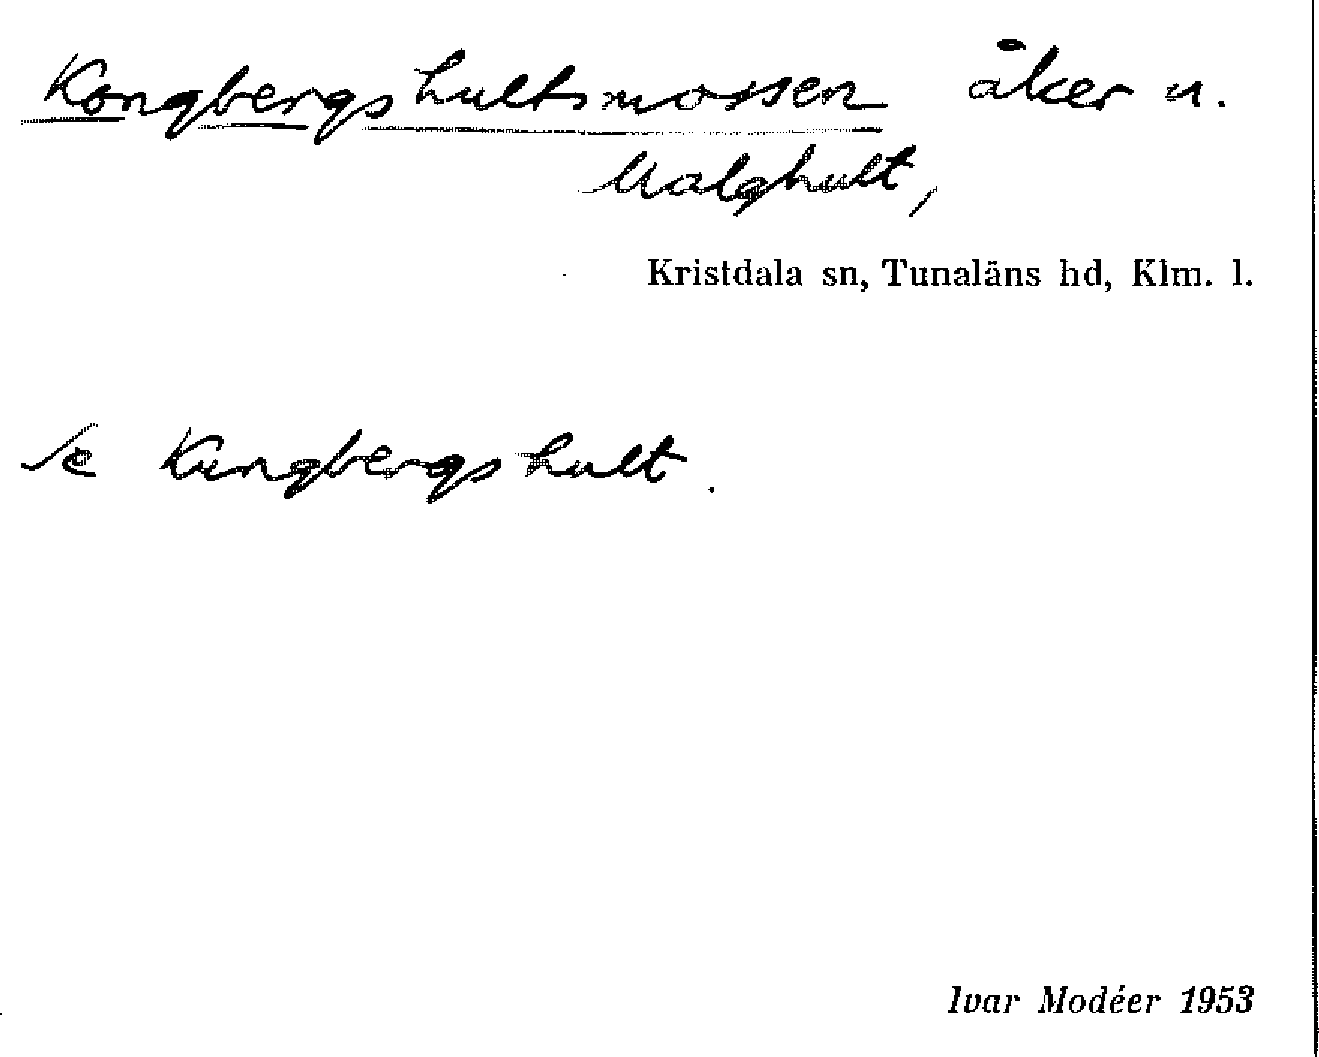 Kongbergshultsmossen åker u.
Malghult,
Kristdala sn, Tunaläns hd, Klm. l.
Se Kungbergshult.
Ivar Modéer 1953